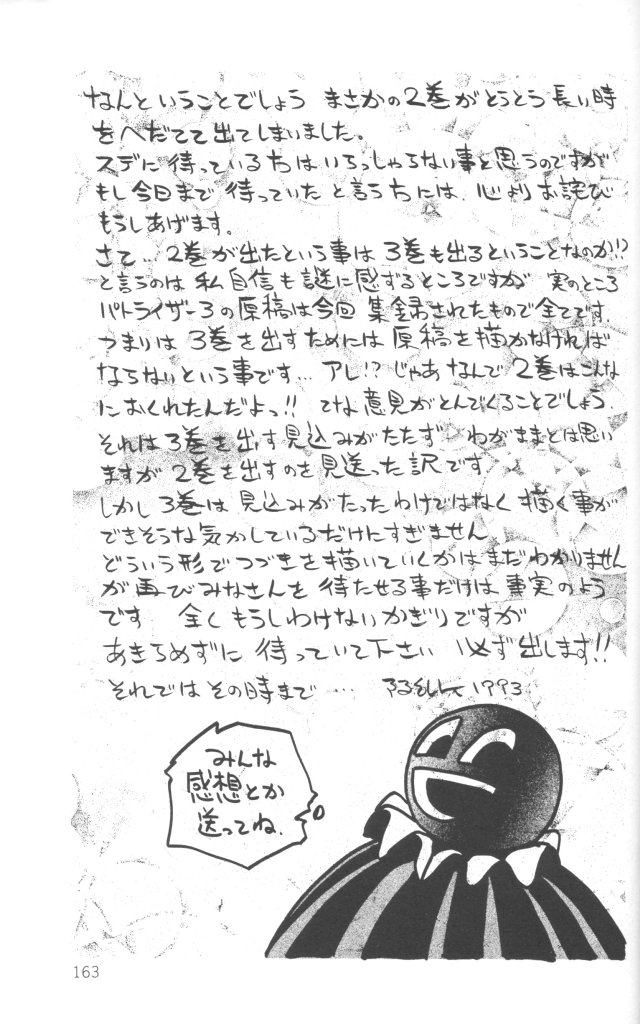 なんということでしょう まさかの2巻がとうとう長い時
をへだてて出てしまいました。
スデに待っている方はいらっしゃらない事と思うのですが
もし今日まで待っていたと言う方には、心よりお詫び
もうしあげます。
さて… 2巻が出たという事は3巻も出るということなのか!?
と言うのは私自信も謎に感ずるところですが 実のところ
パトライザー3の原稿は今回集録されたもので全てです。
つまりは3巻を出すためには原稿を描かなければ
ならないという事です… アレ!?じゃあなんで2巻はこんな
におくれたんだよっ!! てな意見がとんでくることでしょう。
それは3巻を出す見込みがたたず わがままとは思い
ますが2巻を出すのを見送った訳です
しかし3巻は見込みがたったわけではなく描く事が
できそうな気がしているだけにすぎません
どういう形でつづきを描いていくかはまだわかりません
が再びみなさんを待たせる事だけは事実のよう
です 全くもうしわけないかぎりですが
あきらめずに待っていて下さい 必ず出します!!
それではその時まで … 1993
みんな
感想とか
送ってね。
163